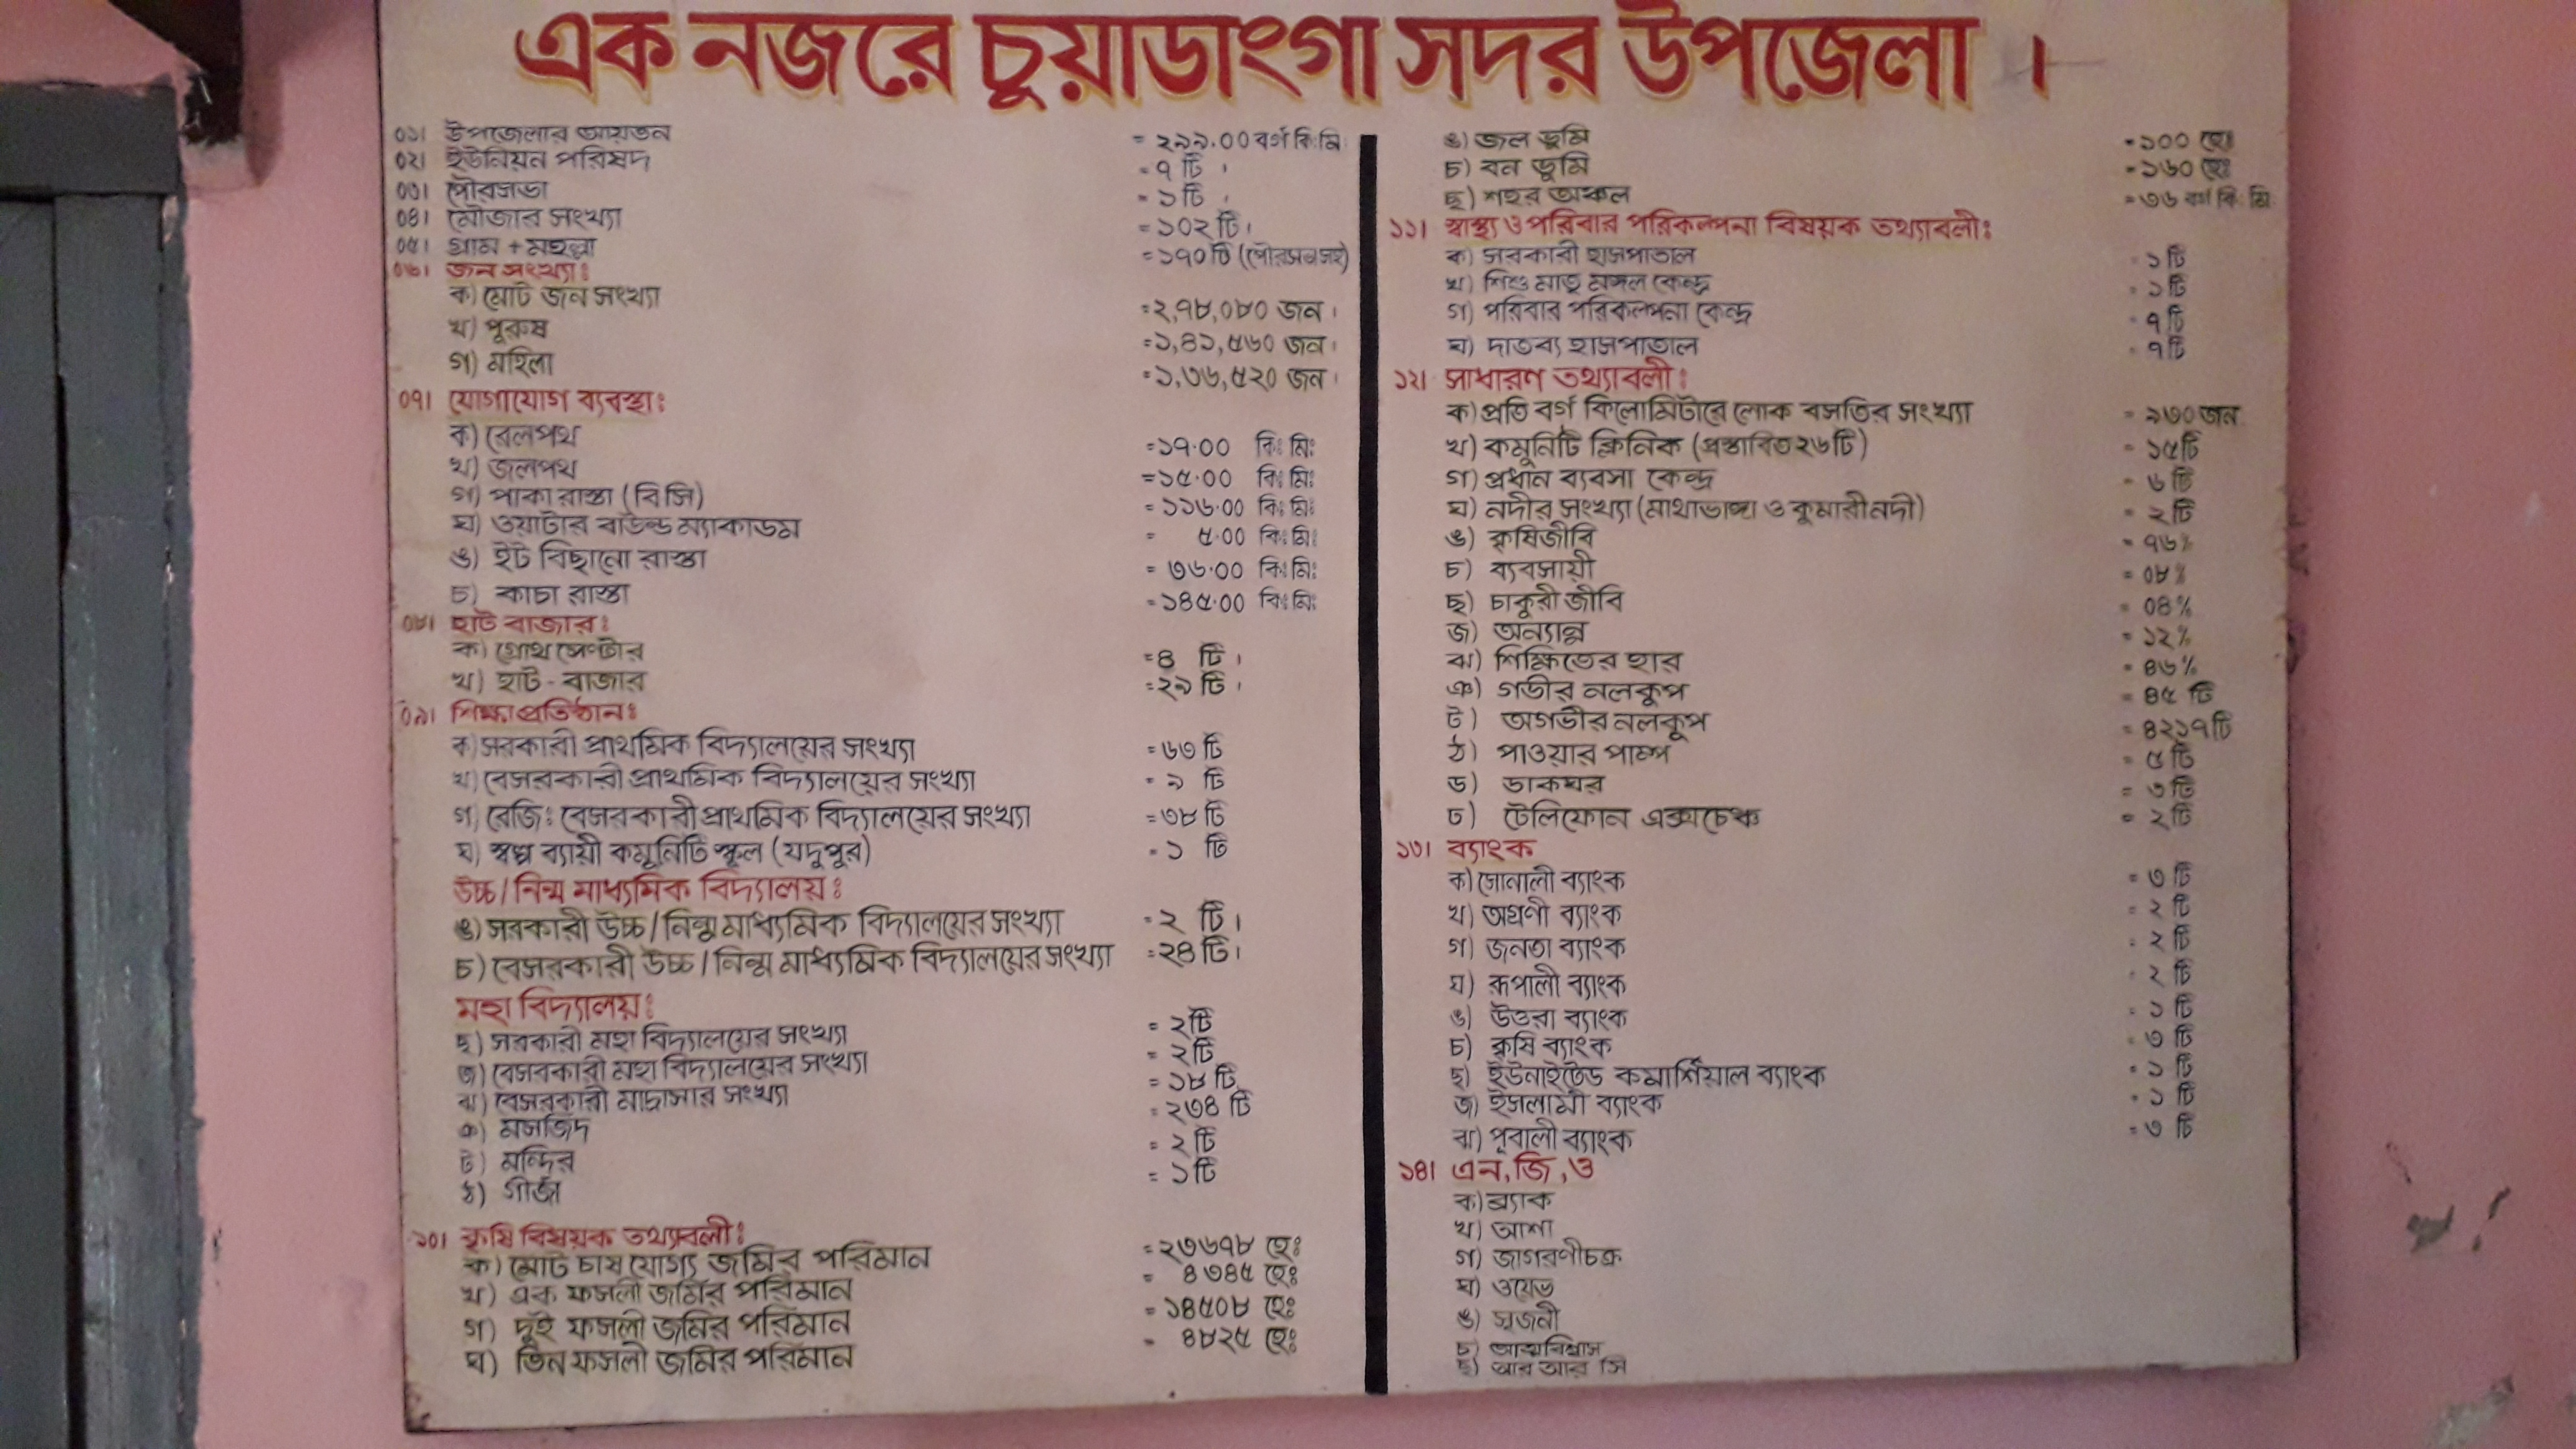 এক নজরে চুয়াডাংগা সদর উপজেলা ।
০১। উপজেলার আয়তন = ২৯৯.০০ বর্গ কি:মি:
০২। ইউনিয়ন পরিষদ = ৭ টি ।
০৩। পৌরসভা = ১ টি ।
০৪। মৌজার সংখ্যা = ১০২ টি।
০৫। গ্রাম + মহল্লা = ১৭০ টি (পৌরসভা সহ)
০৬। জন সংখ্যাঃ
ক) মোট জন সংখ্যা = ২,৭৮,০৮০ জন ।
খ) পুরুষ = ১,৪১,৫৬০ জন ।
গ) মহিলা = ১,৩৬,৫২০ জন ।
০৭। যোগাযোগ ব্যবস্থাঃ
ক) রেলপথ = ১৭.০০ কিঃ মিঃ
খ) জলপথ = ১৫.০০ কিঃ মিঃ
গ) পাকা রাস্তা (বি সি) = ১১৬.০০ কিঃ মিঃ
ঘ) ওয়াটার বাউন্ড ম্যাকাডম = ৫.০০ কিঃ মিঃ
ঙ) ইট বিছানো রাস্তা = ৩৬.০০ কিঃ মিঃ
চ) কাচা রাস্তা = ১৪৫.০০ কিঃ মিঃ
০৮। হাট বাজারঃ
ক) গ্রোথ সেণ্টার = ৪ টি ।
খ) হাট - বাজার = ২৯ টি ।
০৯। শিক্ষা প্রতিষ্ঠানঃ
ক) সরকারী প্রাথমিক বিদ্যালয়ের সংখ্যা = ৬৩ টি
খ) বেসরকারী প্রাথমিক বিদ্যালয়ের সংখ্যা = ৯ টি
গ) রেজিঃ বেসরকারী প্রাথমিক বিদ্যালয়ের সংখ্যা = ৩৮ টি
ঘ) স্বল্প ব্যায়ী কমুনিটি স্কুল (যদুপুর) = ১ টি
উচ্চ / নিন্ম মাধ্যমিক বিদ্যালয়ঃ
ঙ) সরকারী উচ্চ / নিন্ম মাধ্যমিক বিদ্যালয়ের সংখ্যা = ২ টি ।
চ) বেসরকারী উচ্চ / নিন্ম মাধ্যমিক বিদ্যালয়ের সংখ্যা = ২৪ টি।
মহা বিদ্যালয়ঃ
ছ) সরকারী মহা বিদ্যালয়ের সংখ্যা = ২ টি
জ) বেসরকারী মহা বিদ্যালয়ের সংখ্যা = ২ টি
ঝ) বেসরকারী মাদ্রাসার সংখ্যা = ১৮ টি
ঞ) মসজিদ = ২৩৪ টি
ট) মন্দির = ২ টি
ঠ) গীর্জা = ১ টি
১০। কৃষি বিষয়ক তথ্যাবলীঃ
ক) মোট চাষ যোগ্য জমির পরিমান = ২৩৬৭৮ হেঃ
খ) এক ফসলী জমির পরিমান = ৪৩৪৫ হেঃ
গ) দুই ফসলী জমির পরিমান = ১৪৫০৮ হেঃ
ঘ) তিন ফসলী জমির পরিমান = ৪৮২৫ হেঃ
ঙ) জল ভূমি = ১০০ হেঃ
চ) বন ভূমি = ১৬০ হেঃ
ছ) শহর অঞ্চল = ৩৬ বর্গ কি: মি:
১১। স্বাস্থ্য ও পরিবার পরিকল্পনা বিষয়ক তথ্যাবলীঃ
ক) সরকারী হাসপাতাল = ১ টি
খ) শিশু মাতৃ মঙ্গল কেন্দ্র = ১ টি
গ) পরিবার পরিকল্পনা কেন্দ্র = ৭ টি
ঘ) দাতব্য হাসপাতাল = ৭ টি
১২। সাধারণ তথ্যাবলীঃ
ক) প্রতি বর্গ কিলোমিটারে লোক বসতির সংখ্যা = ৯৩০ জন
খ) কমুনিটি ক্লিনিক (প্রস্তাবিত ২৬ টি) = ১৫ টি
গ) প্রধান ব্যবসা কেন্দ্র = ৬ টি
ঘ) নদীর সংখ্যা (মাথাভাঙ্গা ও কুমারী নদী) = ২ টি
ঙ) কৃষিজীবি = ৭৬%
চ) ব্যবসায়ী = ০৮%
ছ) চাকুরী জীবি = ০৪%
জ) অন্যান্ন = ১২%
ঝ) শিক্ষিতের হার = ৪৬%
ঞ) গভীর নলকুপ = ৪৫ টি
ট) অগভীর নলকুপ = ৪২১৭ টি
ঠ) পাওয়ার পাম্প = ৫ টি
ড) ডাকঘর = ৩ টি
ঢ) টেলিফোন এক্সচেঞ্চ = ২ টি
১৩। ব্যাংক
ক) সোনালী ব্যাংক = ৩ টি
খ) অগ্রণী ব্যাংক = ২ টি
গ) জনতা ব্যাংক = ২ টি
ঘ) রূপালী ব্যাংক = ২ টি
ঙ) উত্তরা ব্যাংক = ১ টি
চ) কৃষি ব্যাংক = ৩ টি
ছ) ইউনাইটেড কমার্শিয়াল ব্যাংক = ১ টি
জ) ইসলামী ব্যাংক = ১ টি
ঝ) পূবালী ব্যাংক = ৩ টি
১৪। এন, জি, ও
ক) ব্র্যাক
খ) আশা
গ) জাগরণীচক্র
ঘ) ওয়েভ
ঙ) সৃজনী
চ) আত্মবিশ্বাস
ছ) আর আর সি